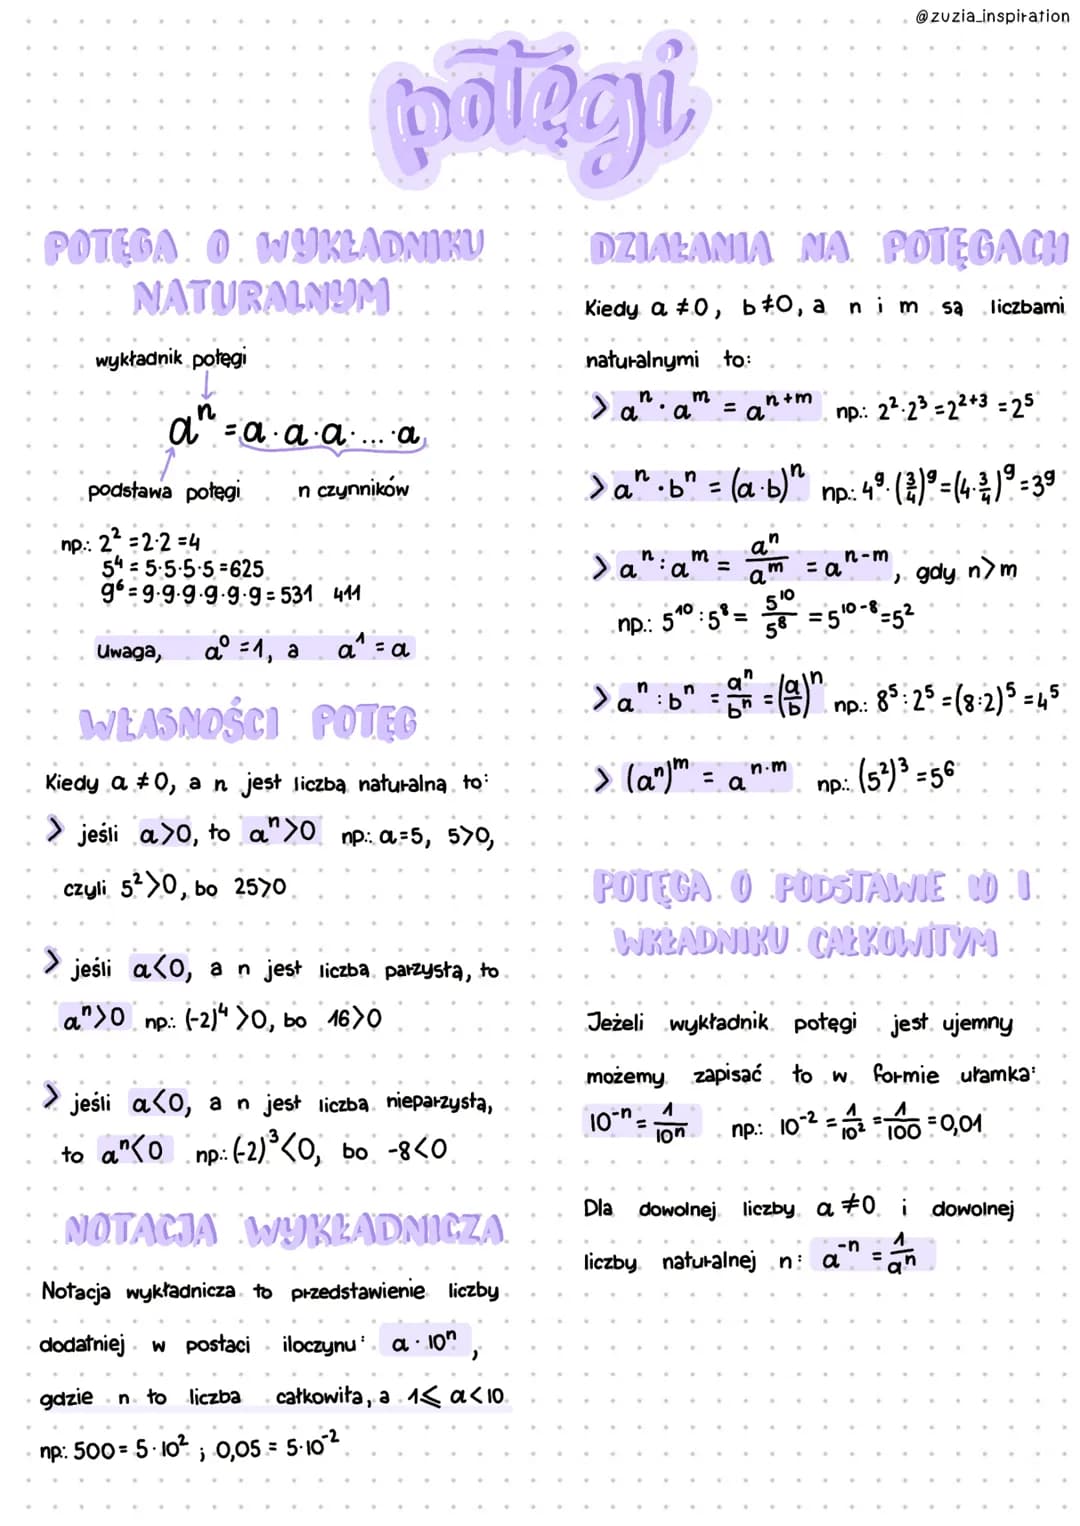 @zuzia_inspiration
potęgi
POTĘGA O WYKŁADNIKU
NATURALNYM
wykładnik potęgi
aⁿ = a · a · a · ... · a
podstawa potęgi n czynników
np.: 2² = 2·2 = 4
5⁴ = 5·5·5·5 = 625
9⁶ = 9·9·9·9·9·9 = 531 411
Uwaga, a⁰ = 1, a a¹ = a
WŁASNOŚCI POTĘG
Kiedy a ≠ 0, a n jest liczbą naturalną to:
> jeśli a>0, to aⁿ>0 np.: a=5, 5>0,
czyli 5²>0, bo 25>0
> jeśli a<0, a n jest liczbą parzystą, to
aⁿ>0 np.: (-2)⁴ >0, bo 16>0
> jeśli a<0, a n jest liczbą nieparzystą,
to aⁿ<0 np.: (-2)³<0, bo -8<0
NOTACJA WYKŁADNICZA
Notacja wykładnicza to przedstawienie liczby
dodatniej w postaci iloczynu: a · 10ⁿ,
gdzie n to liczba całkowita, a 1⩽ a<10
np.: 500 = 5·10² ; 0,05 = 5·10⁻²
DZIAŁANIA NA POTĘGACH
Kiedy a ≠0, b≠0, a n i m są liczbami
naturalnymi to:
> aⁿ · aᵐ = aⁿ⁺ᵐ np.: 2²·2³ = 2²⁺³ = 2⁵
> aⁿ · bⁿ = (a·b)ⁿ np.: 4⁹·(3/4)⁹ = (4·3/4)⁹ = 3⁹
> aⁿ : aᵐ = aⁿ/aᵐ = aⁿ⁻ᵐ, gdy n>m
np.: 5¹⁰ : 5⁸ = 5¹⁰/5⁸ = 5¹⁰⁻⁸ = 5²
> aⁿ : bⁿ = aⁿ/bⁿ = (a/b)ⁿ np.: 8⁵ : 2⁵ = (8:2)⁵ = 4⁵
> (aⁿ)ᵐ = aⁿ·ᵐ np.: (5²)³ = 5⁶
POTĘGA O PODSTAWIE 10 I
WKŁADNIKU CAŁKOWITYM
Jeżeli wykładnik potęgi jest ujemny
możemy zapisać to w formie ułamka:
10⁻ⁿ = 1/10ⁿ np.: 10⁻² = 1/10² = 1/100 = 0,01
Dla dowolnej liczby a ≠0 i dowolnej
liczby naturalnej n: a⁻ⁿ = 1/aⁿ